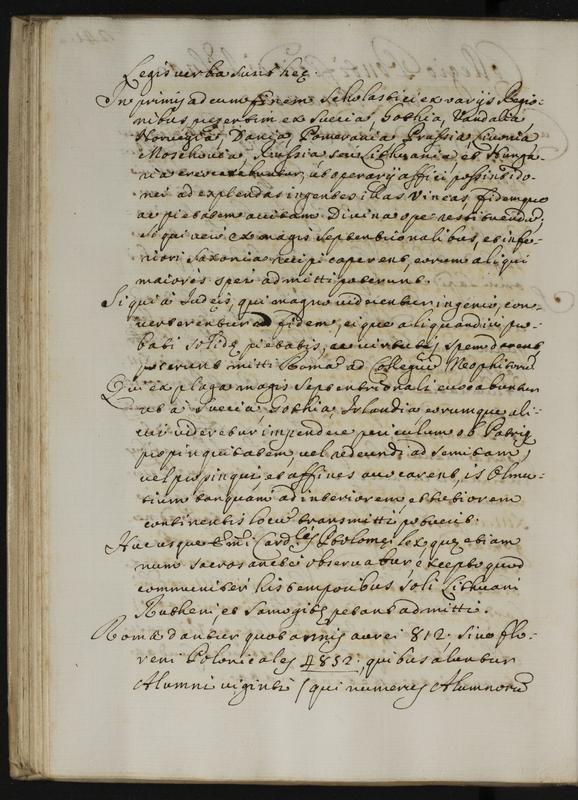 Legis verba sunt hęc.
In primis ad eum finem scholastici ex varijs Regio-
nibus pręsertim ex Suecia, Gothia, Vandalia
Noruegia, Dania, Pomerania Prussia, Liuonia
Moschouia, Russia seu Lithuania et Hunga-
ria ut operarij affici possint ido-
nei ad explendas ingentes illas vineas, fidemque
ac pietatem auitam Divina ope restituendā,
et qui vero ex magis septentrionalibus, et infe-
riori Saxonia recipi caperent, eorum aliqui
maioris spei admitti poterunt.
Si qui à Iudęis, qui magno viderentur ingenio, con-
verterentur ad fidem, eique aliquandiu pro-
bati solidę pietatis, ac virtutis spem darent
poterunt mitti Romā ad Collegiū Neophitorū
Qui ex plaga magis septentrionali euocabuntur
ut à Suecia Gothia, Irlandia eorumque ali-
cui videretur impendere periculum ob Patrię
propinquitatem, vel redeundi ad semitam,
vel propinqui et affines auocarent, is Olmu-
tium tanquam ad interiorem et tutiorem
continentis locū transmitti poterit.
Huc usque Emi Cardlis Ptolomęi lex quę etiam
num sacrosancte observatur excepto quod
communiter his temporibus soli Lithuani
Rutheni, et Samogitę petant admitti.
Romæ dantur quotannis aurei 812. siue flo-
reni Polonicales 4852, quibus aluntur
Alumni viginti (qui numerus Alumnorū